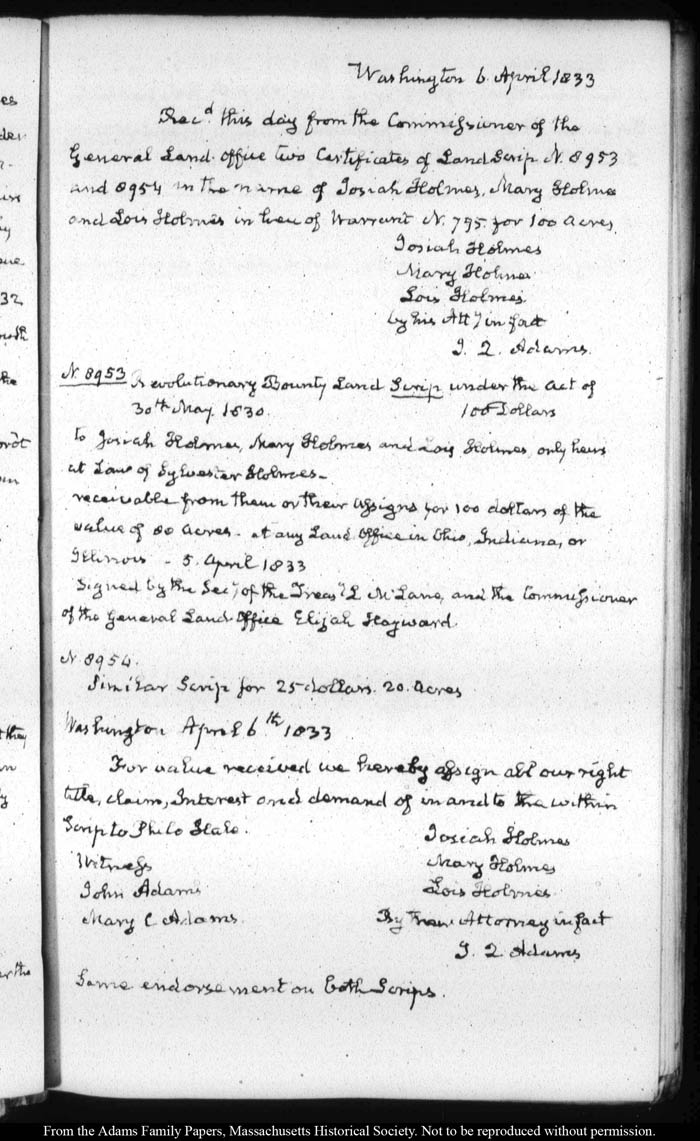 Washington 6. April 1833
Recd. this day from the Commissioner of the
General Land Office two Certificates of Land Scrip N. 8953
and 8954 in the name of Josiah Holmes, Mary Holmes
and Lois Holmes in lieu of Warrant N. 795. for 100 Acres
Josiah Holmes
Mary Holmes
Lois Holmes
by his Atty in fact
J. Q. Adams.
N. 8953 Revolutionary Bounty Land Scrip under the Act of
30th May 1830. 100 Dollars
To Josiah Holmes, Mary Holmes and Lois Holmes, only heirs
at Law of Sylvester Holmes—
receivable from them or their assigns for 100 dollars of the
value of 80 Acres - at any Land Office in Ohio, Indiana, or
Illinois - 5. April 1833
Signed by the Secy of the Treasy L McLane, and the Commissioner
of the General Land Office Elijah Hayward.
N 8954.
Similar Scrip for 25 dollars. 20. Acres
Washington April 6th 1833
For value received we hereby assign all our right
title, claim, Interest and demand of in and to the within
Scrip to Philo Hale.
Josiah Holmes
Witness
Mary Holmes
John Adams
Lois Holmes.
Mary C Adams.
By their Attorney in fact
J. Q Adams
Same endorsement on both Scrips.
From the Adams Family Papers, Massachusetts Historical Society. Not to be reproduced without permission.